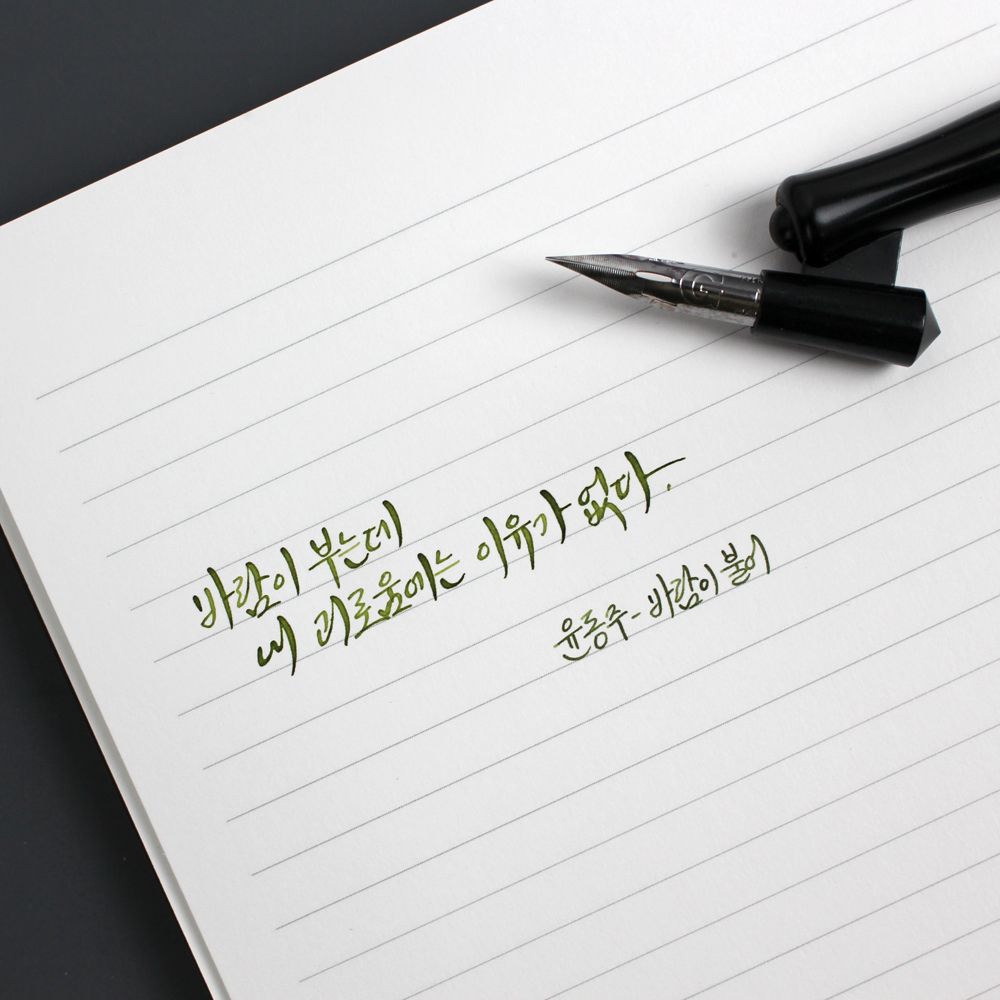 바람이 부는데
내 괴로움에는 이유가 없다.
윤동주-바람이 불어